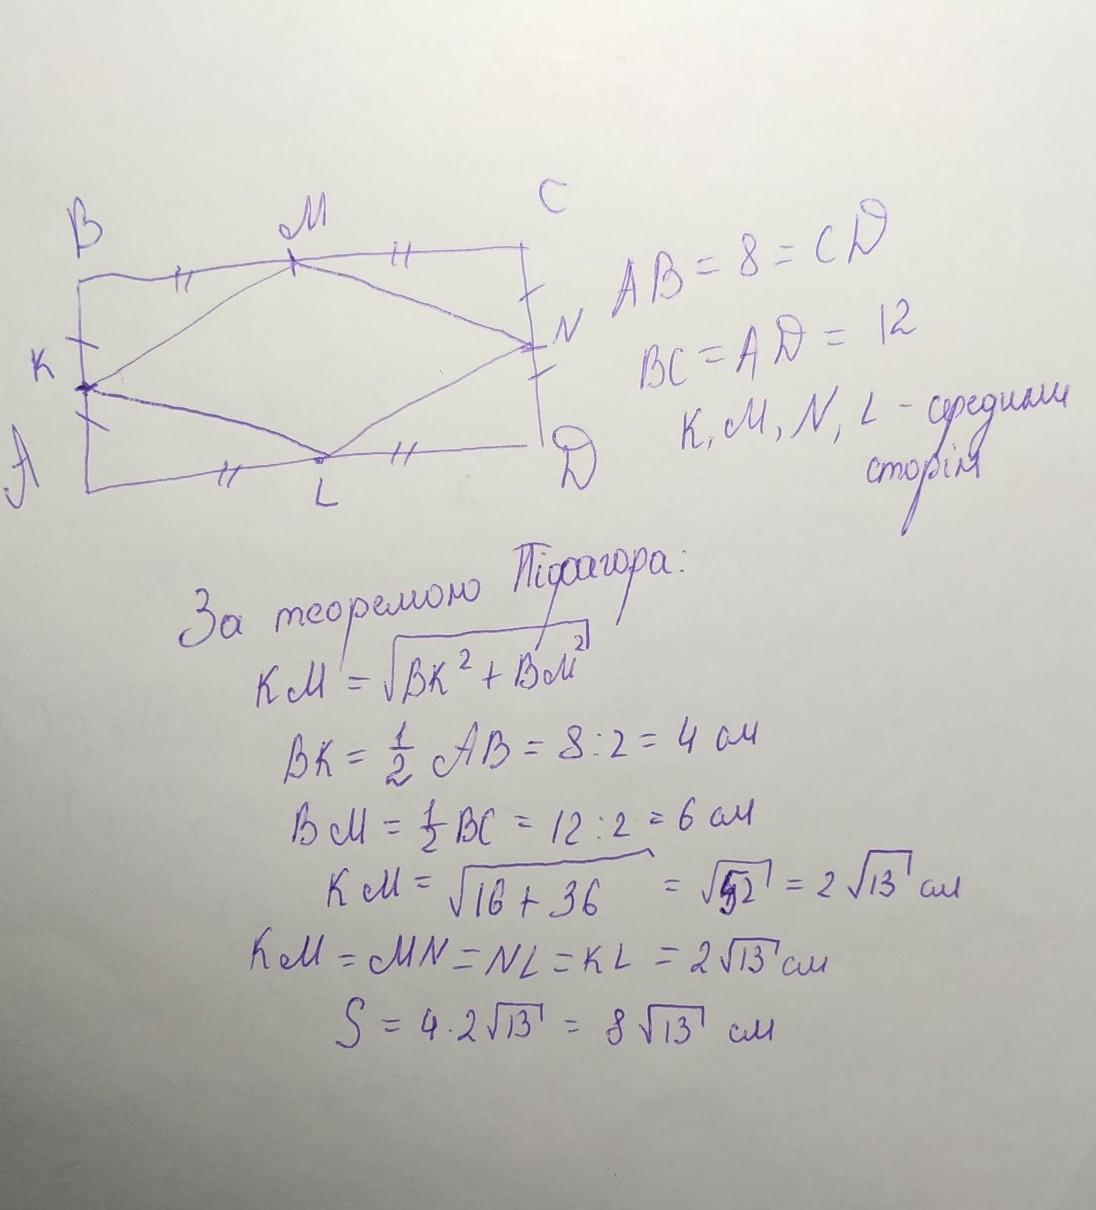 B
M
C
K
N
A
L
D
AB = 8 = CD
BC = AD = 12
K, M, N, L - середини
сторін
За теоремою Піфагора:
KM = √BK² + BM²
BK = 1/2 AB = 8:2 = 4 см
BM = 1/2 BC = 12:2 = 6 см
KM = √16 + 36 = √52 = 2√13 см
KM = MN = NL = KL = 2√13 см
S = 4·2√13 = 8√13 см